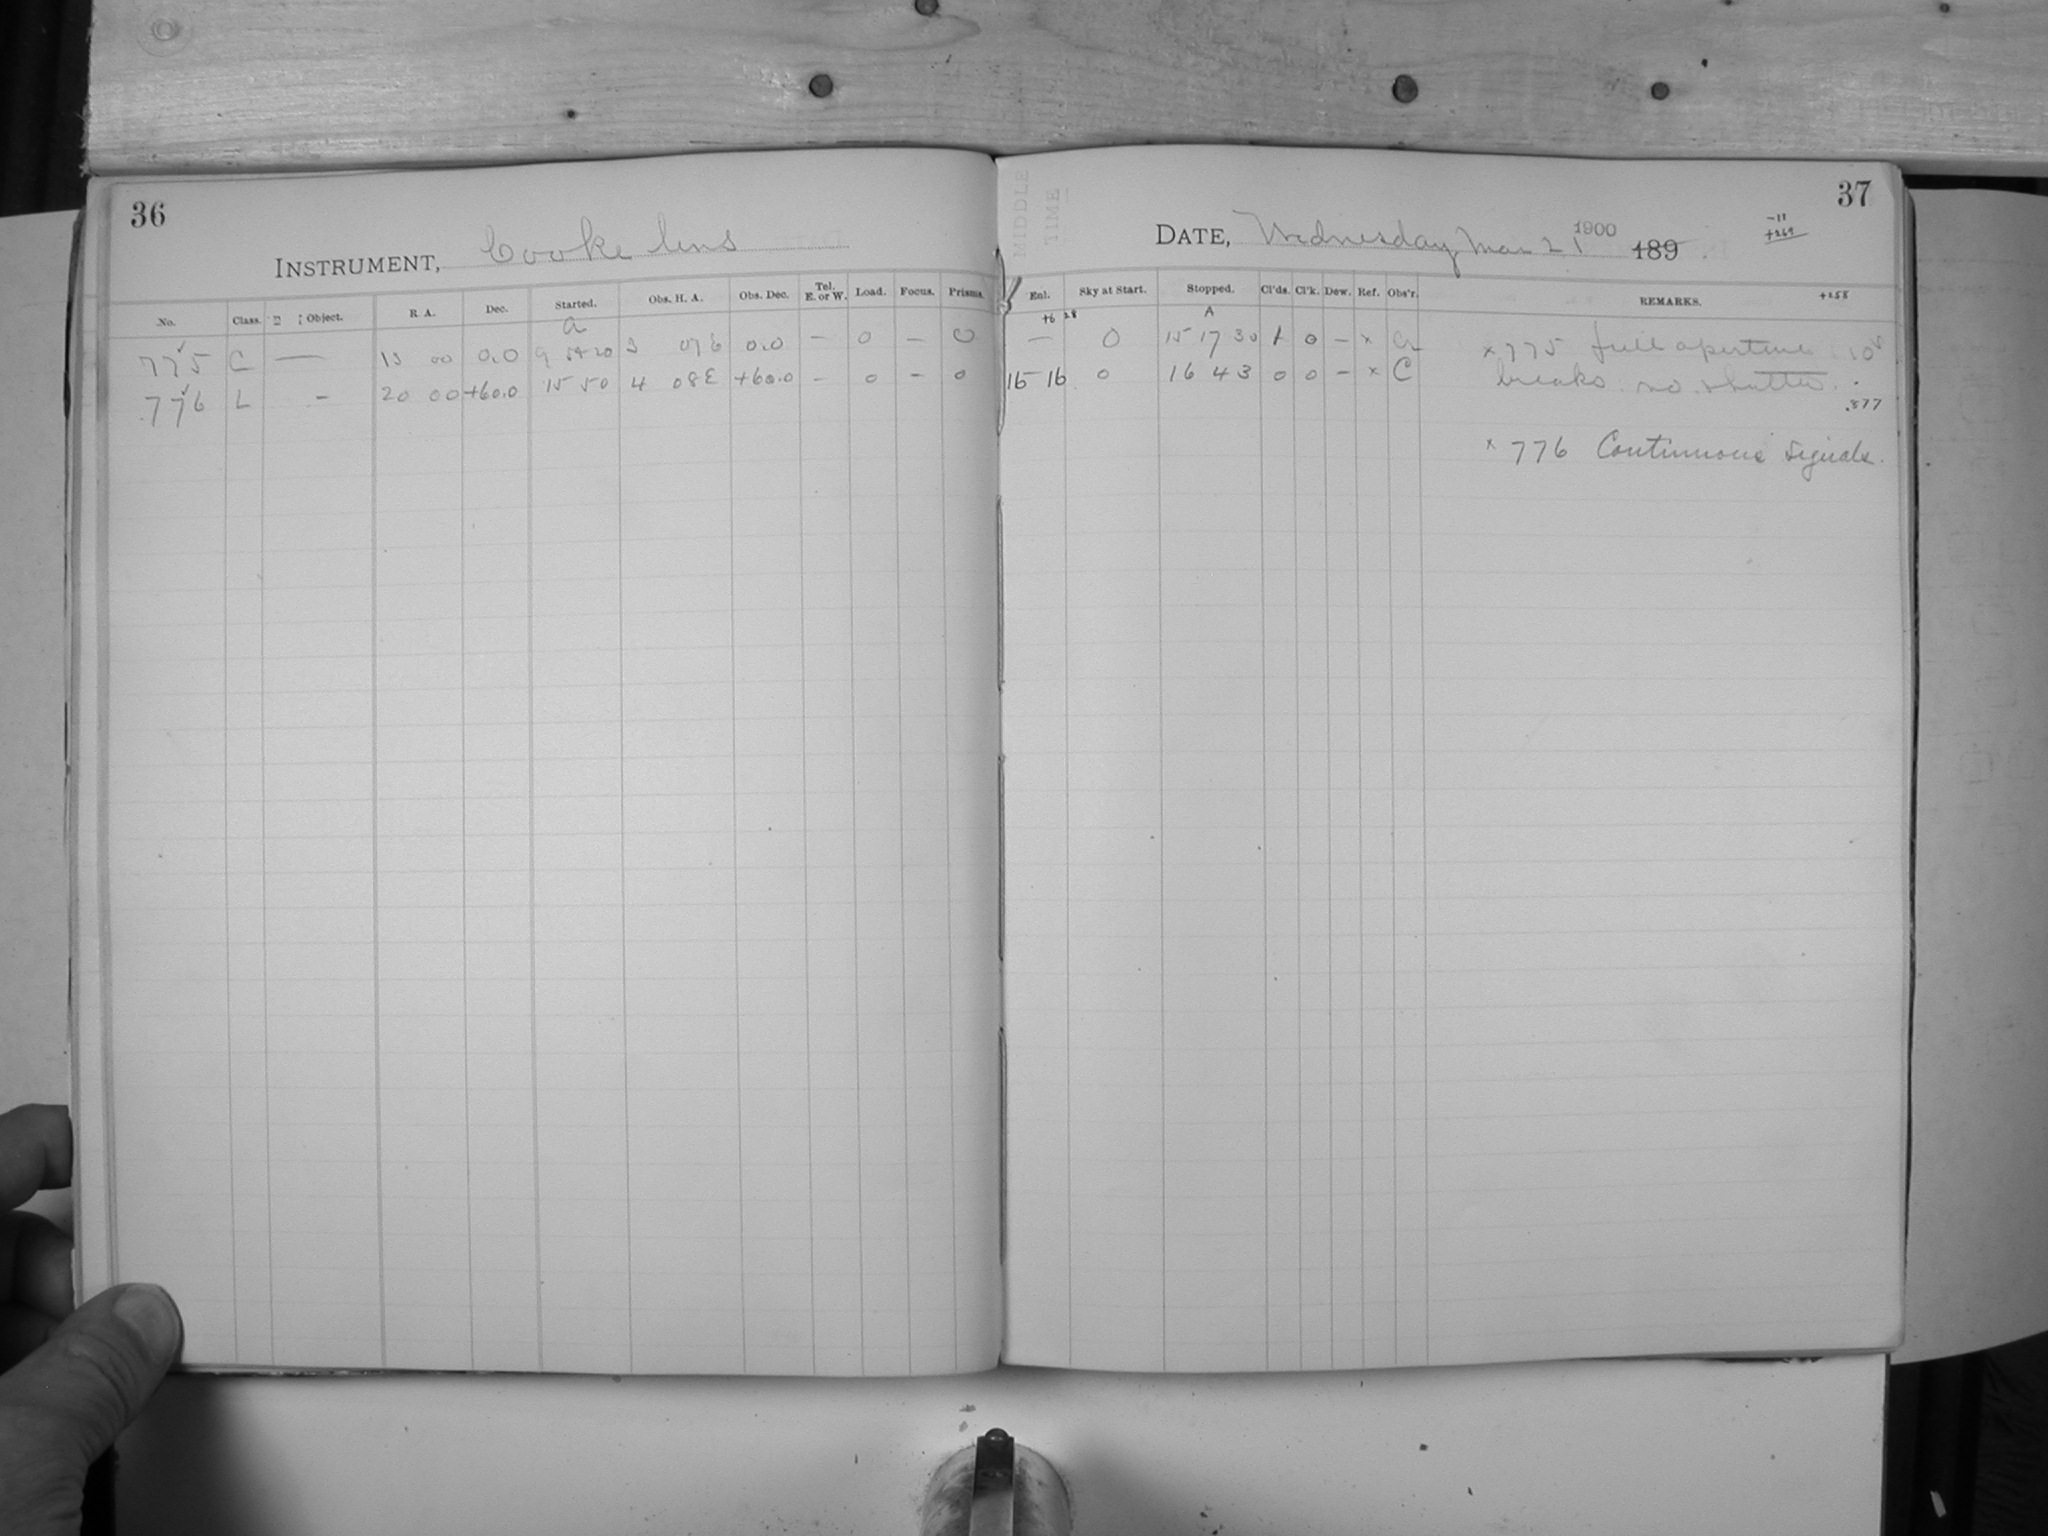 36
INSTRUMENT, Cooke lens
No. Class. Object. R. A. Dec. Started. Obs. H. A. Obs. Dec. Tel. E. or W. Load. Focus. Prisms.
a
775 C — 13 00 0.0 9 54 20 3 07 E 0.0 — 0 — 0
776 L - 20 00 +60.0 15 50 4 08 E +60.0 - 0 - 0
MIDDLE
TIME
37
DATE, Wednesday Mar 21 1900 189
-11
+269
+258
Enl. Sky at Start. Stopped. Cl'ds. Cl'k. Dew. Ref. Obs'r. REMARKS.
+6 28 A
— 0 15 17 30 1 0 - x x 775 full aperture. 10s
16 16 0 16 43 0 0 - x C breaks. no shutter.
.877
x 776 Continuous signals.